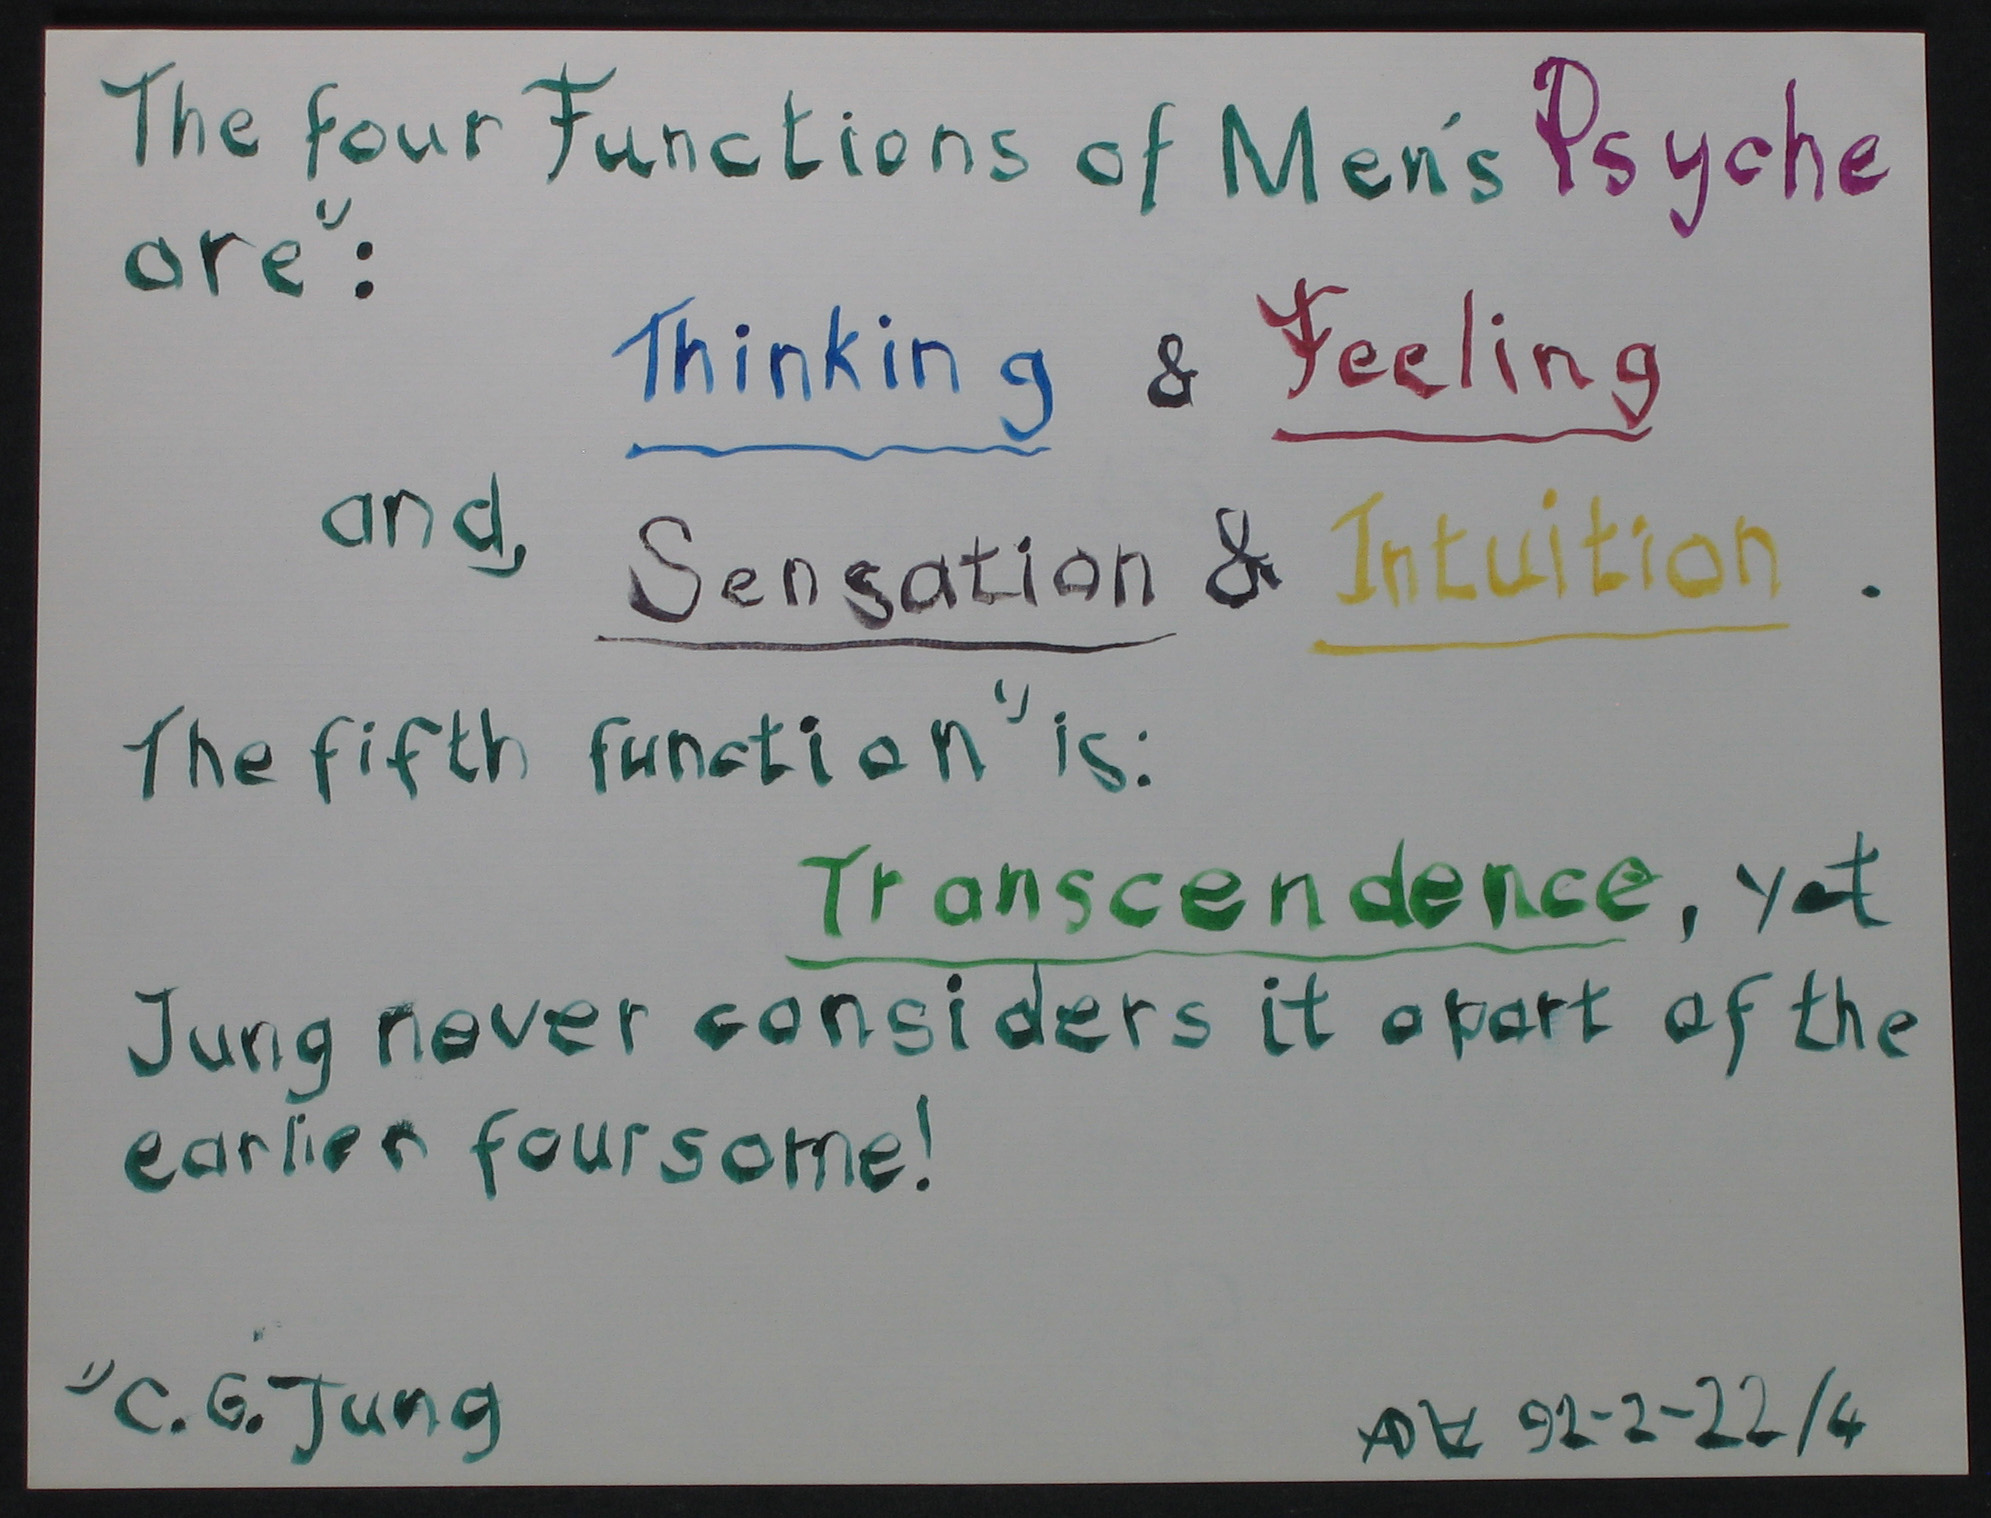 The four Functions of Men's Psyche
are":
Thinking & Feeling
and, Sensation & Intuition .
The fifth function" is:
Transcendence, yet
Jung never considers it apart of the
earlier foursome!
"C. G. Jung
92-2-22/4